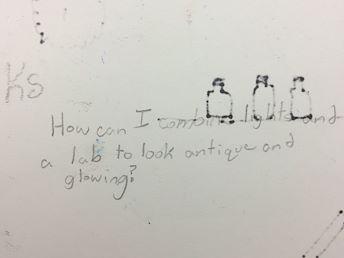 Ks
How can I combine lights and
a lab to look antique and
glowing?